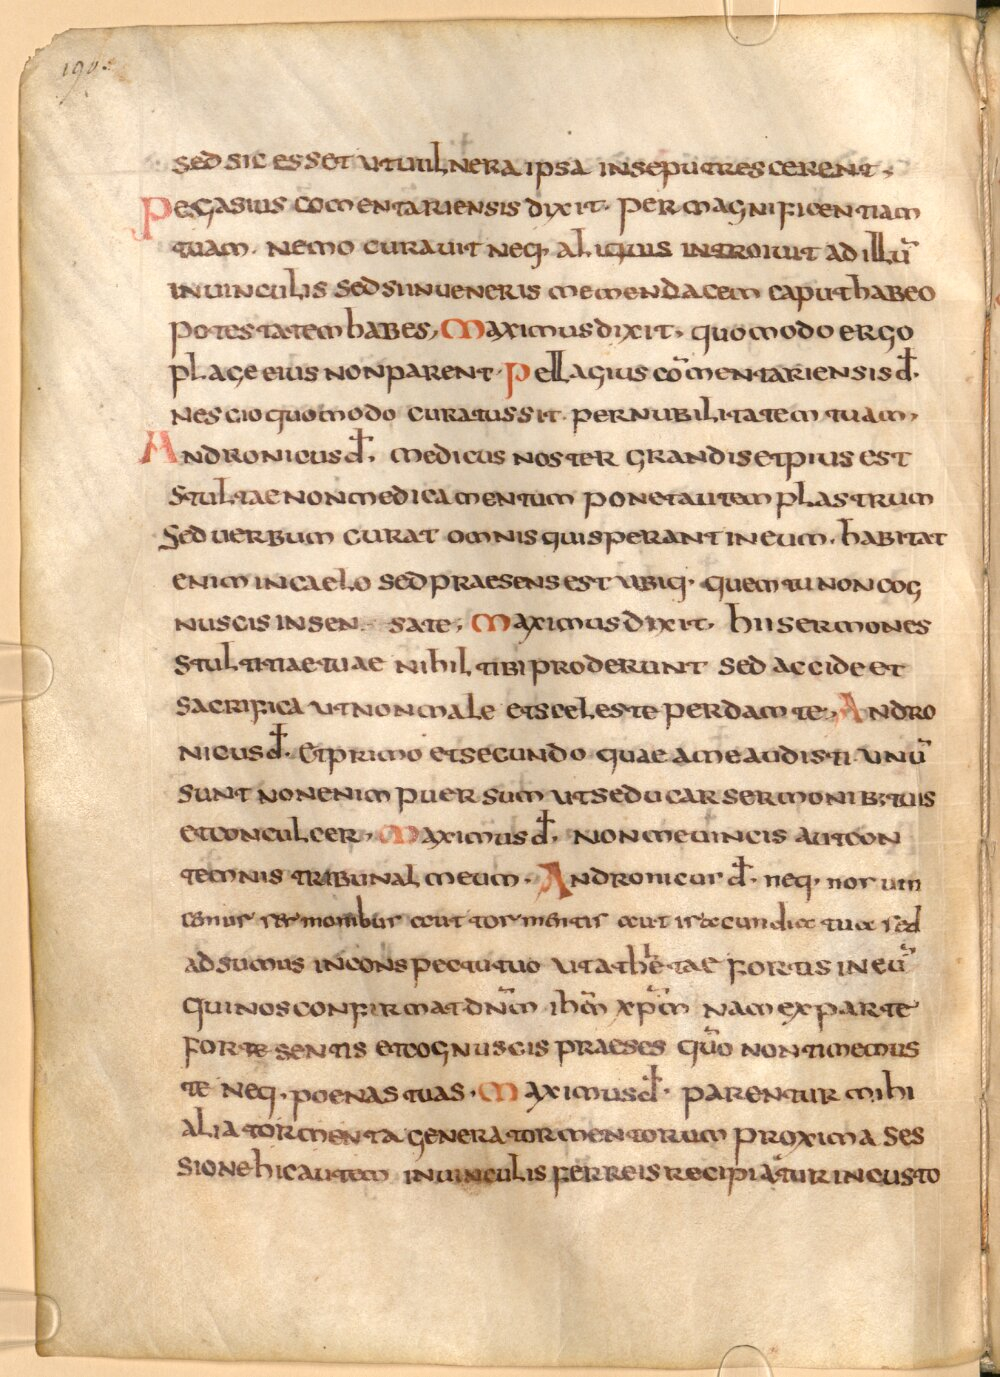 190.
sed sic esset ut uulnera ipsa inseputrescerent,
Pegasius comentariensis dixit. per magnificentiam
tuam. nemo curauit neq, aliquis introiuit ad illū
inuinculis sed si inueneris me mendacem caput habeo
potestatem habes, Maximus dixit, quomodo ergo
plage eius non parent. Pellagius cōmentariensis đ.
nescio quomodo curatus sit. per nubilitatem tuam,
Andronicus đ, medicus noster grandis et pius est
stultae non medicamentum ponet autem plastrum
Sed uerbum curat omnis qui sperant in eum. habitat
enim in caelo sed praesens est ubiq. quem tu non cog
nuscis insen sate, Maximus dixit, hii sermones
stultitiae tuae nihil tibi proderunt sed accide et
sacrifica ut non male et sceleste perdam te, Andro
nicus đ. Et primo et secundo quae a me audisti unū
sunt non enim puer sum ut seducar sermonib; tuis
et conculcer, Maximus đ. non me uincis aut con
temnis tribunal meum. Andronicus đ. neq. nos uin
cemus sermonibus aut tormentis aut iracundia tua sed
adsumus in conspectu tuo ut athle tae fortis in eū
qui nos confirmat dnm̄ ihm̄ xpm̄ nam ex parte
forte sentis et cognuscis praeses quō non timemus
te neq. poenas tuas. Maximus đ. parentur mihi
alia tormenta genera tormentorum proxima ses
sione hic autem in uinculis ferreis recipiatur in custo